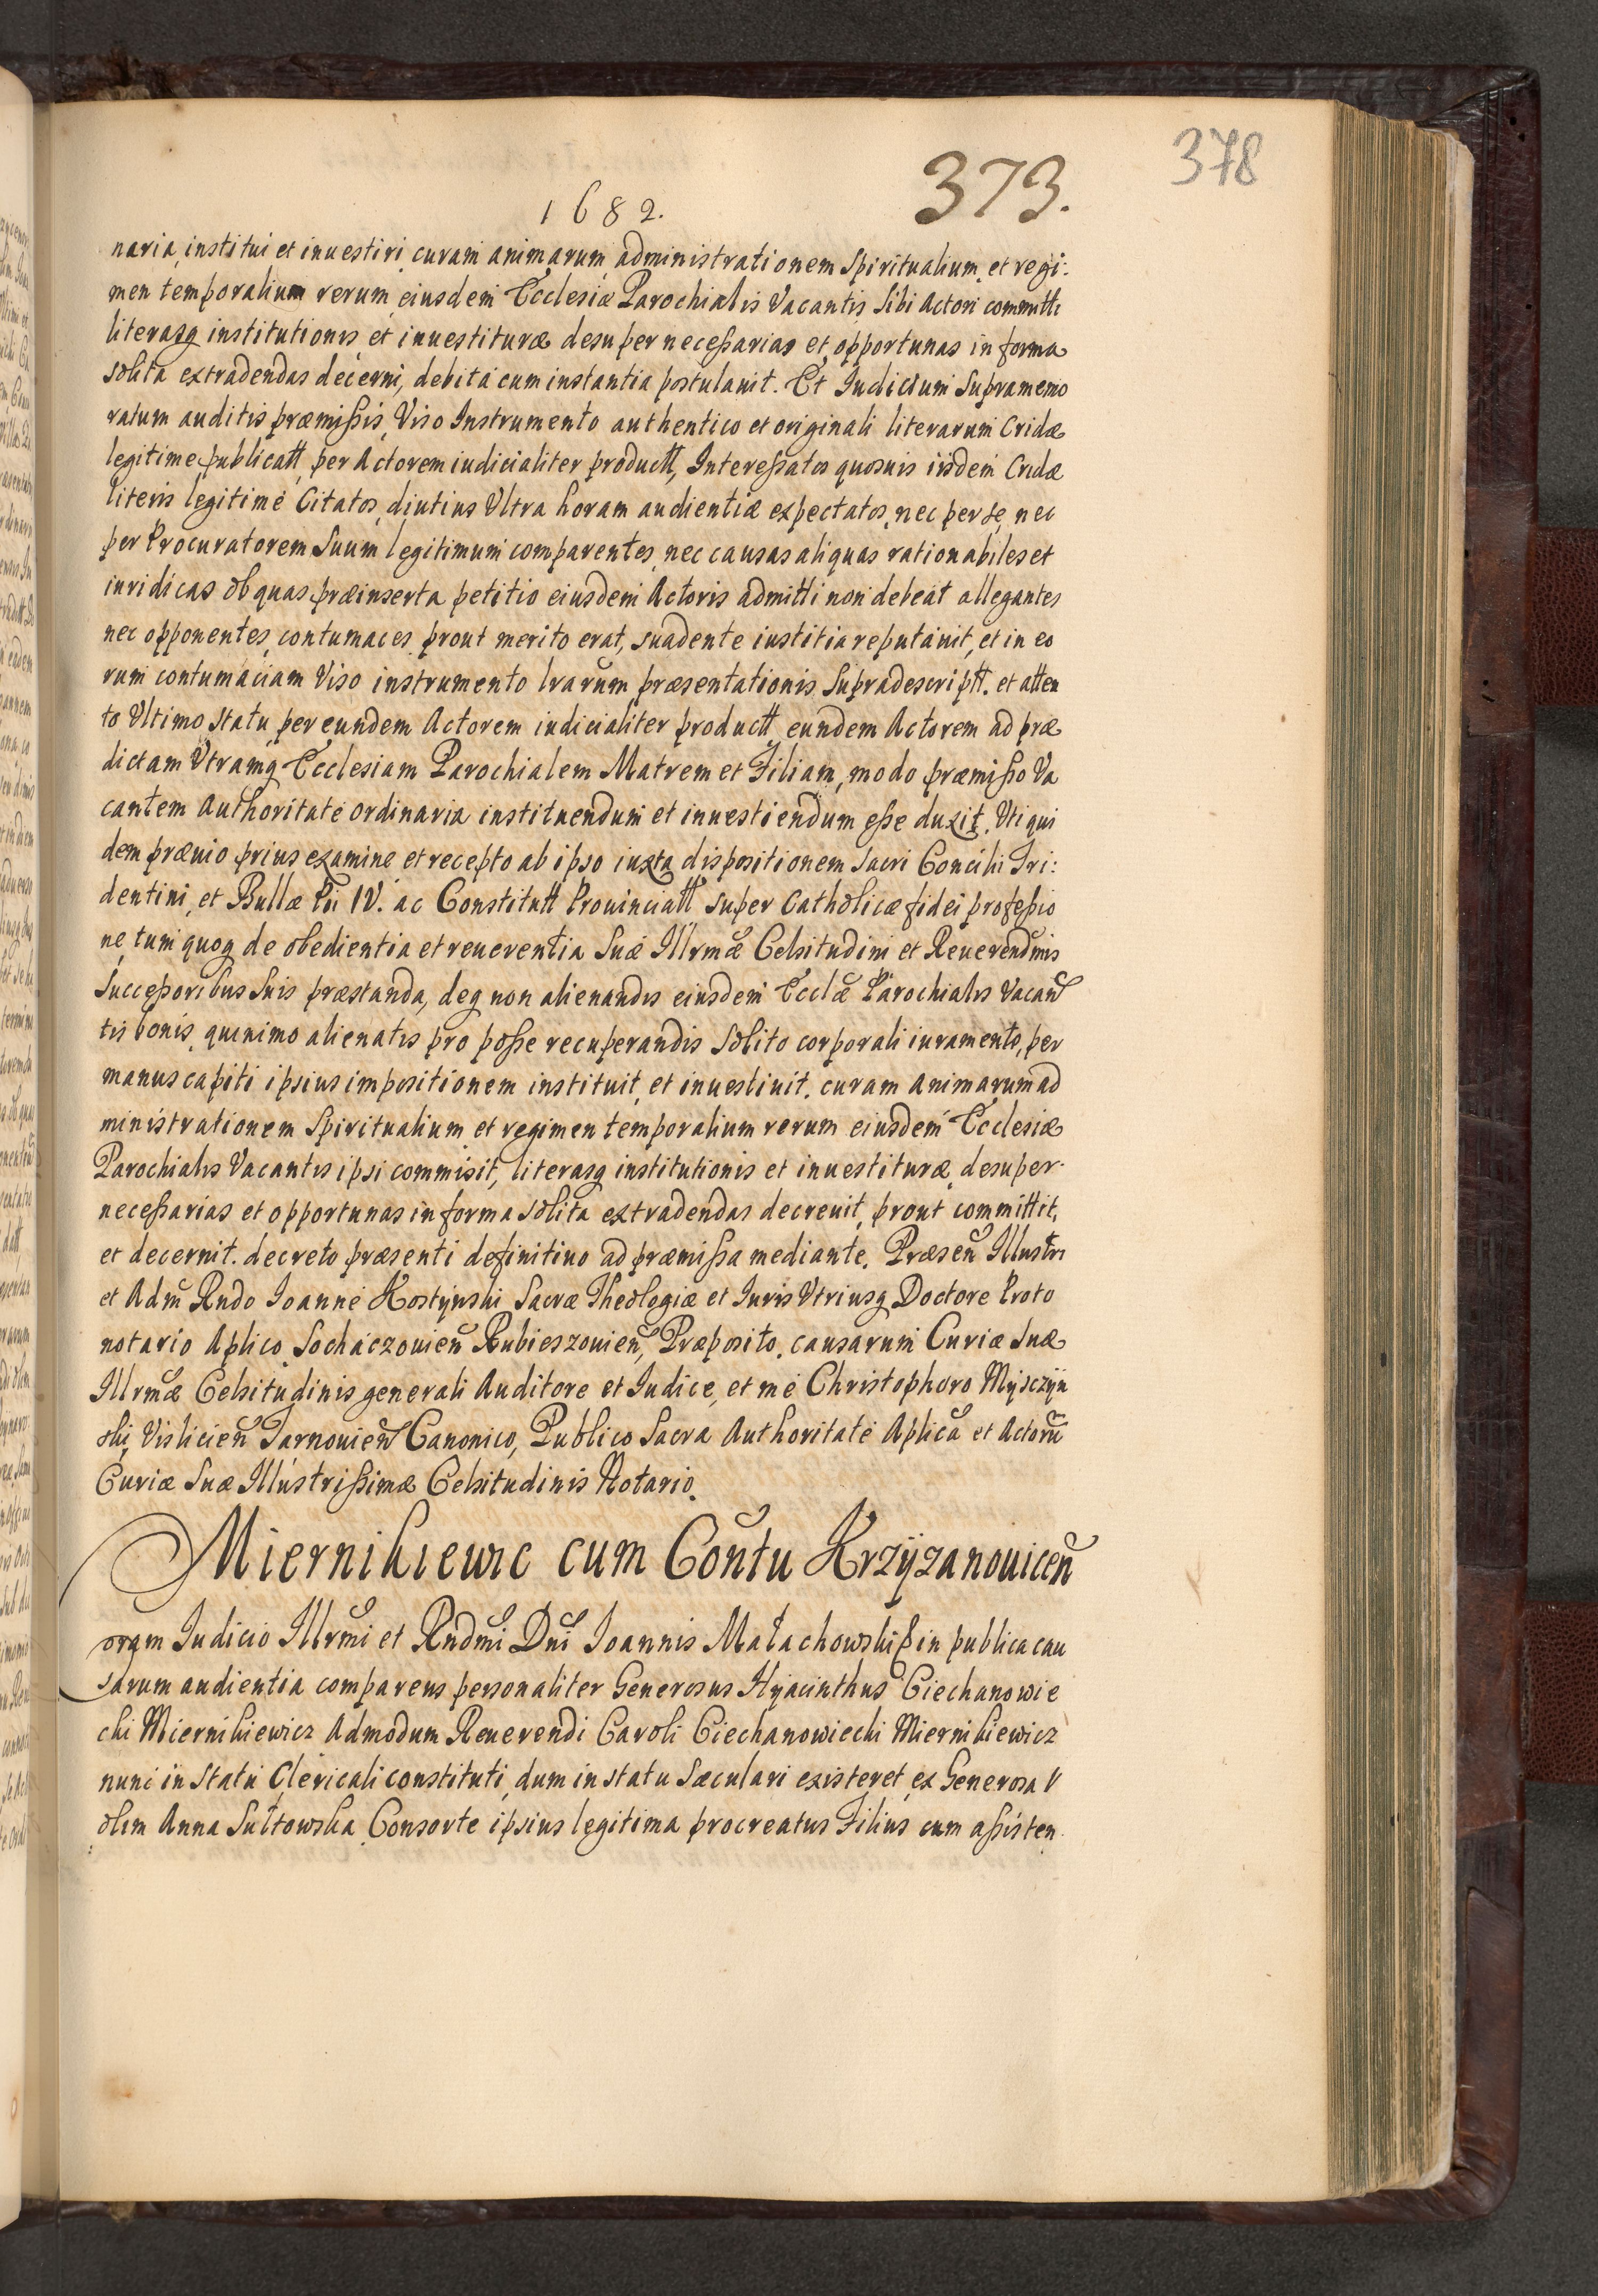 378
373.
1682.
naria, institui et inuestiri, curam animarum administrationem Spiritualium et regi:
men temporalium rerum eiusdem Ecclesiæ Parochialis Vacantis Sibi Actori committi
literasq institutionis et inuestituræ desuper necessarias et opportunas in forma
solita extradendas decerni, debita cum instantia postulauit. Et Iudicium Supramemo
ratum auditis præmissis, Viso Instrumento authentico et originali literarum Cridæ
legitime publicatt per Actorem iudicialiter productt, Interessatos quosuis iisdem Cridæ
literis legitime Citatos, diutius Vltra horam audientiæ expectatos, nec per se, nec
per Procuratorem Suum legitimum comparentes, nec causas aliquas rationabiles et
iuridicas ob quas præinserta petitio eiusdem Actoris admitti non debeat allegantes
nec opponentes, contumaces prout merito erat, suadente iustitia reputauit, et in eo
rum contumaciam Viso instrumento lrarum præsentationis Supradescriptt. et atten
to Vltimo statu per eundem Actorem iudicialiter productt eundem Actorem ad præ
dictam Vtramq Ecclesiam Parochialem Matrem et Filiam, modo præmisso Va
cantem Authoritate ordinaria instituendum et inuestiendum esse duxit. Vti qui
dem præuio prius examine et recepto ab ipso iuxta dispositionem Sacri Concilii Tri:
dentini, et Bullæ Pii IV. ac Constitutt Prouinciatt super Catholicæ fidei professio
ne, tum quoq de obedientia et reuerentia Suæ Illrmæ Celsitudini et Reuerendmis
Successoribus Suis præstanda, deq non alienandis eiusdem Ecclæ Parochialis Vacan
tis bonis, quinimo alienatis pro posse recuperandis Solito corporali iuramento, per
manus capiti ipsius impositionem instituit, et inuestiuit. curam animarum ad
ministrationem Spiritualium et regimen temporalium rerum eiusdem Ecclesiæ
Parochialis Vacantis ipsi commisit, literasq institutionis et inuestituræ desuper
necessarias et opportunas in forma solita extradendas decreuit, prout committit,
et decernit. decreto præsenti definitiuo ad præmissa mediante. Præsen Illustri
et Adm Rndo Ioanne Kostynski Sacræ Theologiæ et Iuris Vtriusq Doctore Proto
notario Aplico Sochaczouien Rubieszouien, Præposito, causarum Curiæ Suæ
Illrmæ Celsitudinis generali Auditore et Iudice, et me Christophoro Mysczyn
ski, Vislicien Tarnouien Canonico, Publico Sacra Authoritate Aplica et Actoru
Curiæ Suæ Illustrissimæ Celsitudinis Notario.
Miernikiewic cum Contu Krzyzanouicen
Coram Iudicio Illrmi et Rndmi Dni Ioannis Małachowski in publica cau
sarum audientia comparens personaliter Generosus Hyacinthus Ciechanowie
cki Miernikiewicz Admodum Reuerendi Caroli Ciechanowiecki Miernikiewicz
nunc in Statu Clericali constituti, dum in statu Sæculari existeret, ex Generosa
olim Anna Sułtowska Consorte ipsius legitima procreatus Filius, cum assisten